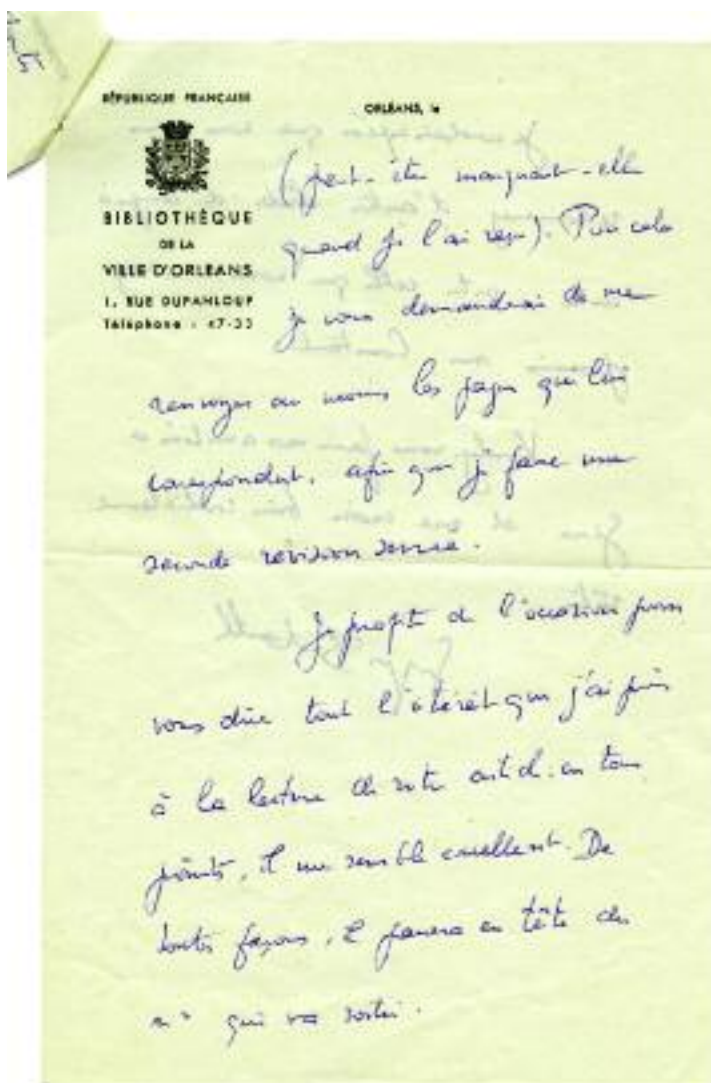 RÉPUBLIQUE FRANÇAISE
ORLÉANS, le
BIBLIOTHÈQUE
DE LA
VILLE D'ORLEANS
1, RUE DUPANLOUP
Téléphone : 47-33
(peut-être manquait-elle
quand je l'ai reçu). Pour cela
je vous demanderai de me
renvoyer au moins les pages qui lui
correspondent, afin que je fasse une
seconde révision
Je profite de l'occasion pour
vous dire tout l'intérêt que j'ai pris
à la lecture de votre article. en tous
points, il me semble excellent. De
toutes façons, il passera en tête du
n° qui va sortir.